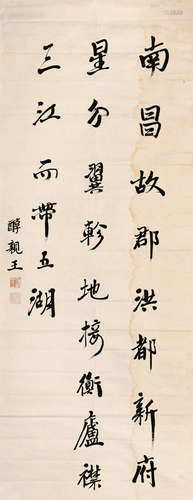 南昌故郡洪都新府
星分翼軫地接衡廬襟
三江而帶五湖
醇親王